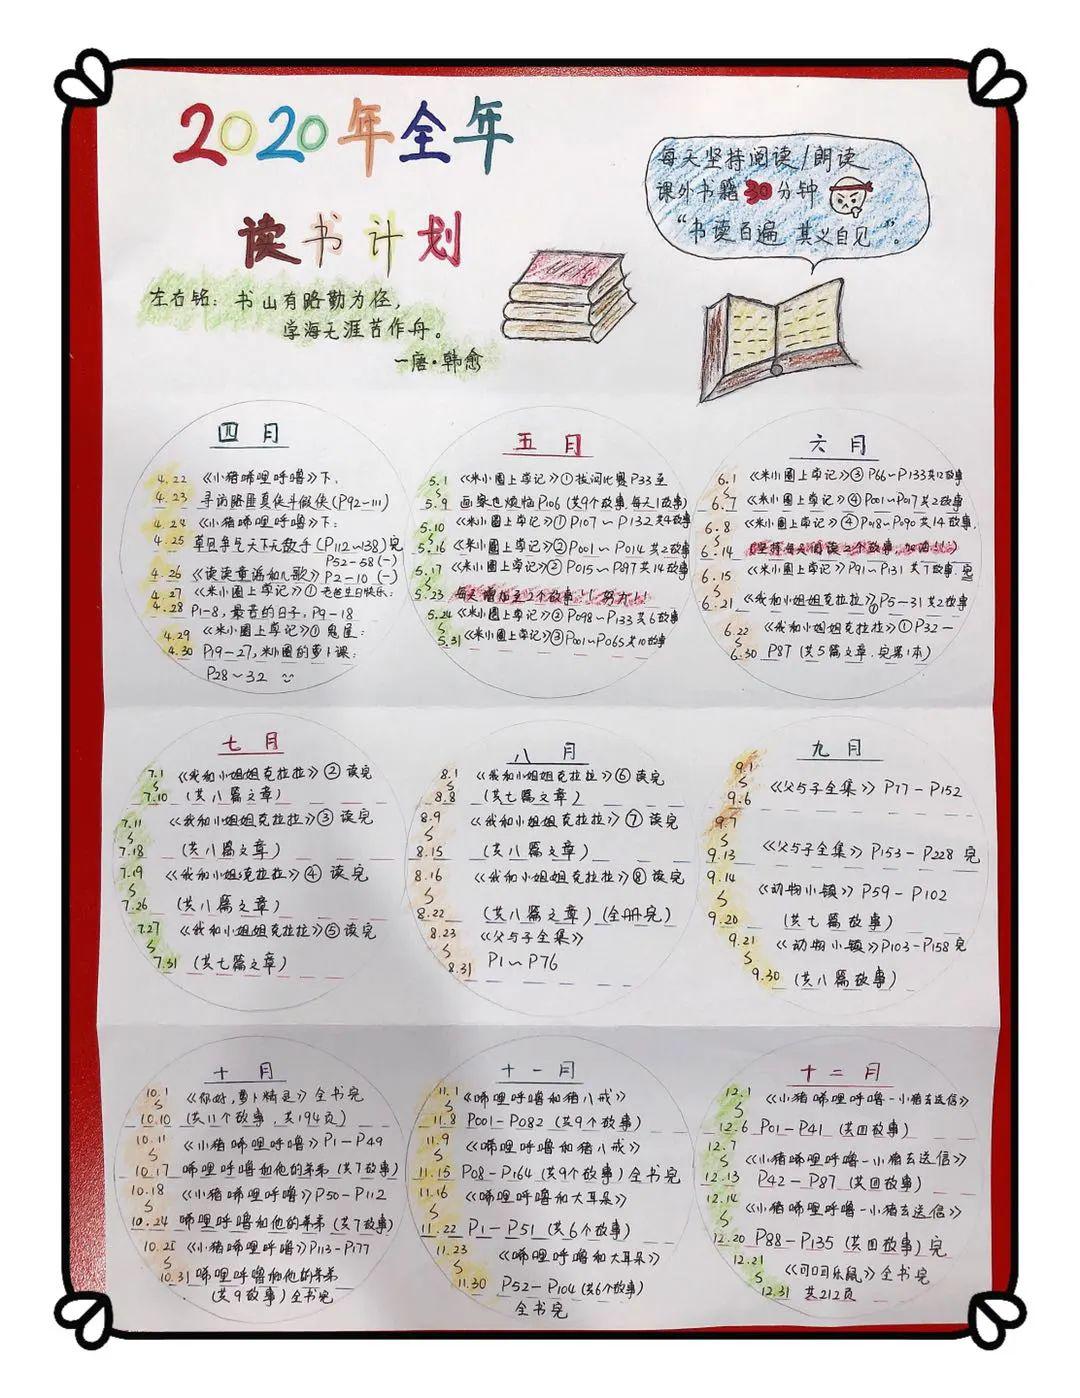 2020年全年
读书计划
左右铭：书山有路勤为径，
学海无涯苦作舟。
—唐·韩愈
每天坚持阅读/朗读
课外书籍30分钟
“书读百遍 其义自见”。
四月
4.22 《小猪唏哩呼噜》下，
4.23 寻访赔匪真侠斗假侠(P92-111)
4.24 《小猪唏哩呼噜》下：
4.25 草目争气天下无敌手(P112~138)完
P52-58(一)
4.26 《读读童谣和儿歌》P2-10(一)
4.27 《米小圈上学记》① 老爸生日快乐：
4.28 P1-8，最苦的日子，P9-18
4.29 《米小圈上学记》① 鬼屋：
4.30 P19-27，米小圈的萝卜课：
P28~32
五月
5.1 《米小圈上学记》① 拔河比赛P33至
5.9 画家也烦恼P106 (共9个故事，每天1故事)
5.10 《米小圈上学记》① P107~P132共4故事
5.16 《米小圈上学记》② P001~P014共2故事
5.17 《米小圈上学记》② P015~P097共14故事
5.23 每天增加至2个故事!! 努力!!
5.24 《米小圈上学记》② P098~P133共6故事
5.31 《米小圈上学记》③ P001~P065共10故事
六月
6.1 《米小圈上学记》③ P66~P133共12故事
6.7 《米小圈上学记》④ P001~P017共2故事
6.8 《米小圈上学记》④ P018~P090共14故事，
6.14 (坚持每天阅读2个故事，加油!!)
6.15 《米小圈上学记》P91~P131共7故事 完
6.21 《我和小姐姐克拉拉》① P5-31共2故事
6.22 《我和小姐姐克拉拉》① P32-
6.30 P87 (共5篇文章，完第1本)
七月
7.1 《我和小姐姐克拉拉》② 读完
7.10 (共八篇文章)
7.11 《我和小姐姐克拉拉》③ 读完
7.18 (共八篇文章)
7.19 《我和小姐姐克拉拉》④ 读完
7.26 (共八篇文章)
7.27 《我和小姐姐克拉拉》⑤ 读完
7.31 (共七篇文章)
八月
8.1 《我和小姐姐克拉拉》⑥ 读完
8.8 (共七篇文章)
8.9 《我和小姐姐克拉拉》⑦ 读完
8.15 (共八篇文章)
8.16 《我和小姐姐克拉拉》⑧ 读完
8.22 (共八篇文章)(全册完)
8.23 《父与子全集》
8.31 P1~P76
九月
9.1 《父与子全集》P77-P152
9.6
9.7
9.13 《父与子全集》P153-P228 完
9.14 《动物小镇》P59-P102
9.20 (共七篇故事)
9.21 《动物小镇》P103-P158完
9.30 (共八篇故事)
十月
10.1 《你好，萝卜精灵》全书完
10.10 (共11个故事，共194页)
10.11 《小猪唏哩呼噜》P1-P49
10.17 唏哩呼噜和他的弟弟(共7故事)
10.18 《小猪唏哩呼噜》P50-P112
10.24 唏哩呼噜和他的弟弟(共7故事)
10.25 《小猪唏哩呼噜》P113-P177
10.31 唏哩呼噜和他的弟弟
(共9故事)全书完
十一月
11.1 《唏哩呼噜和猪八戒》
11.8 P001-P082 (共9个故事)
11.9 《唏哩呼噜和猪八戒》
11.15 P08-P164 (共9个故事)全书完
11.16 《唏哩呼噜和大耳朵》
11.22 P1-P51 (共6个故事)
11.23 《唏哩呼噜和大耳朵》
11.30 P52-P104 (共6个故事)
全书完
十二月
12.1 《小猪唏哩呼噜-小猪去送信》
12.6 P01-P41 (共四故事)
12.7 《小猪唏哩呼噜-小猪去送信》
12.13 P42-P87 (共四故事)
12.14 《小猪唏哩呼噜-小猪去送信》
12.20 P88-P135 (共四故事)完
12.21 《可可乐鼠》全书完
12.31 共212页